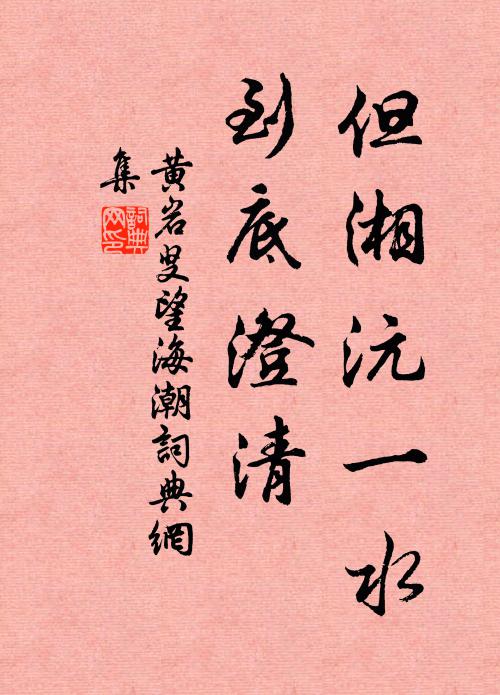 但湘沅一水
到底澄清
黄岩叟望海潮詞典網
集
詞典
网印